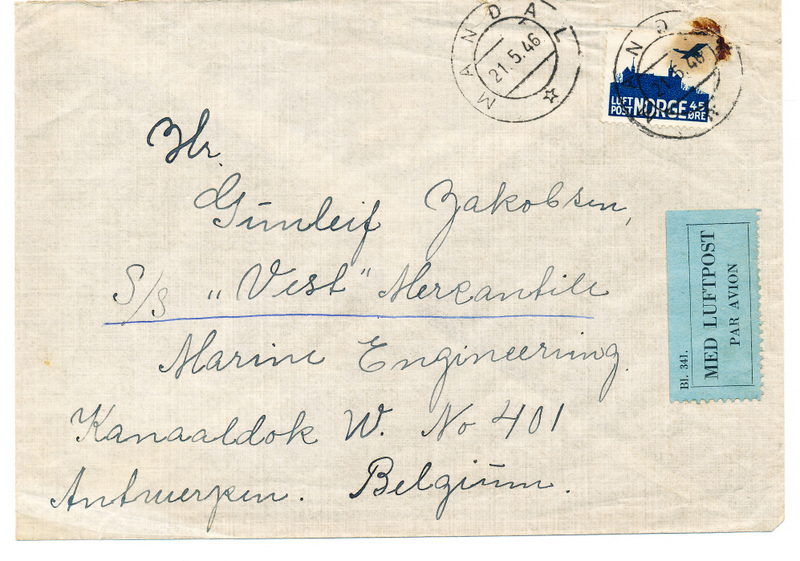 MANDAL
21.5.46
MANDAL
21.5.46
LUFT
POST NORGE 45
ØRE
Hr.
Gunleif Jakobsen,
S/s „Vest" Mercantile
Marine Engineering.
Kanaaldok W. No 401
Antwerpen. Belgium.
MED LUFTPOST
PAR AVION
Bl. 341.